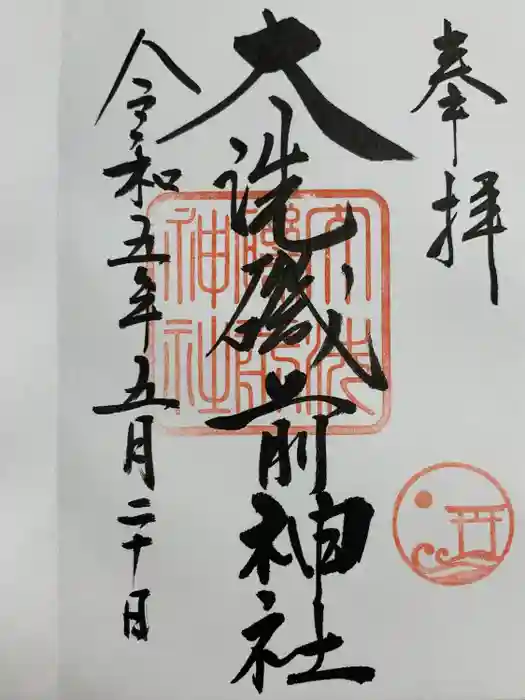 奉拝
大洗磯前神社
令和五年五月二十日
大洗磯前神社